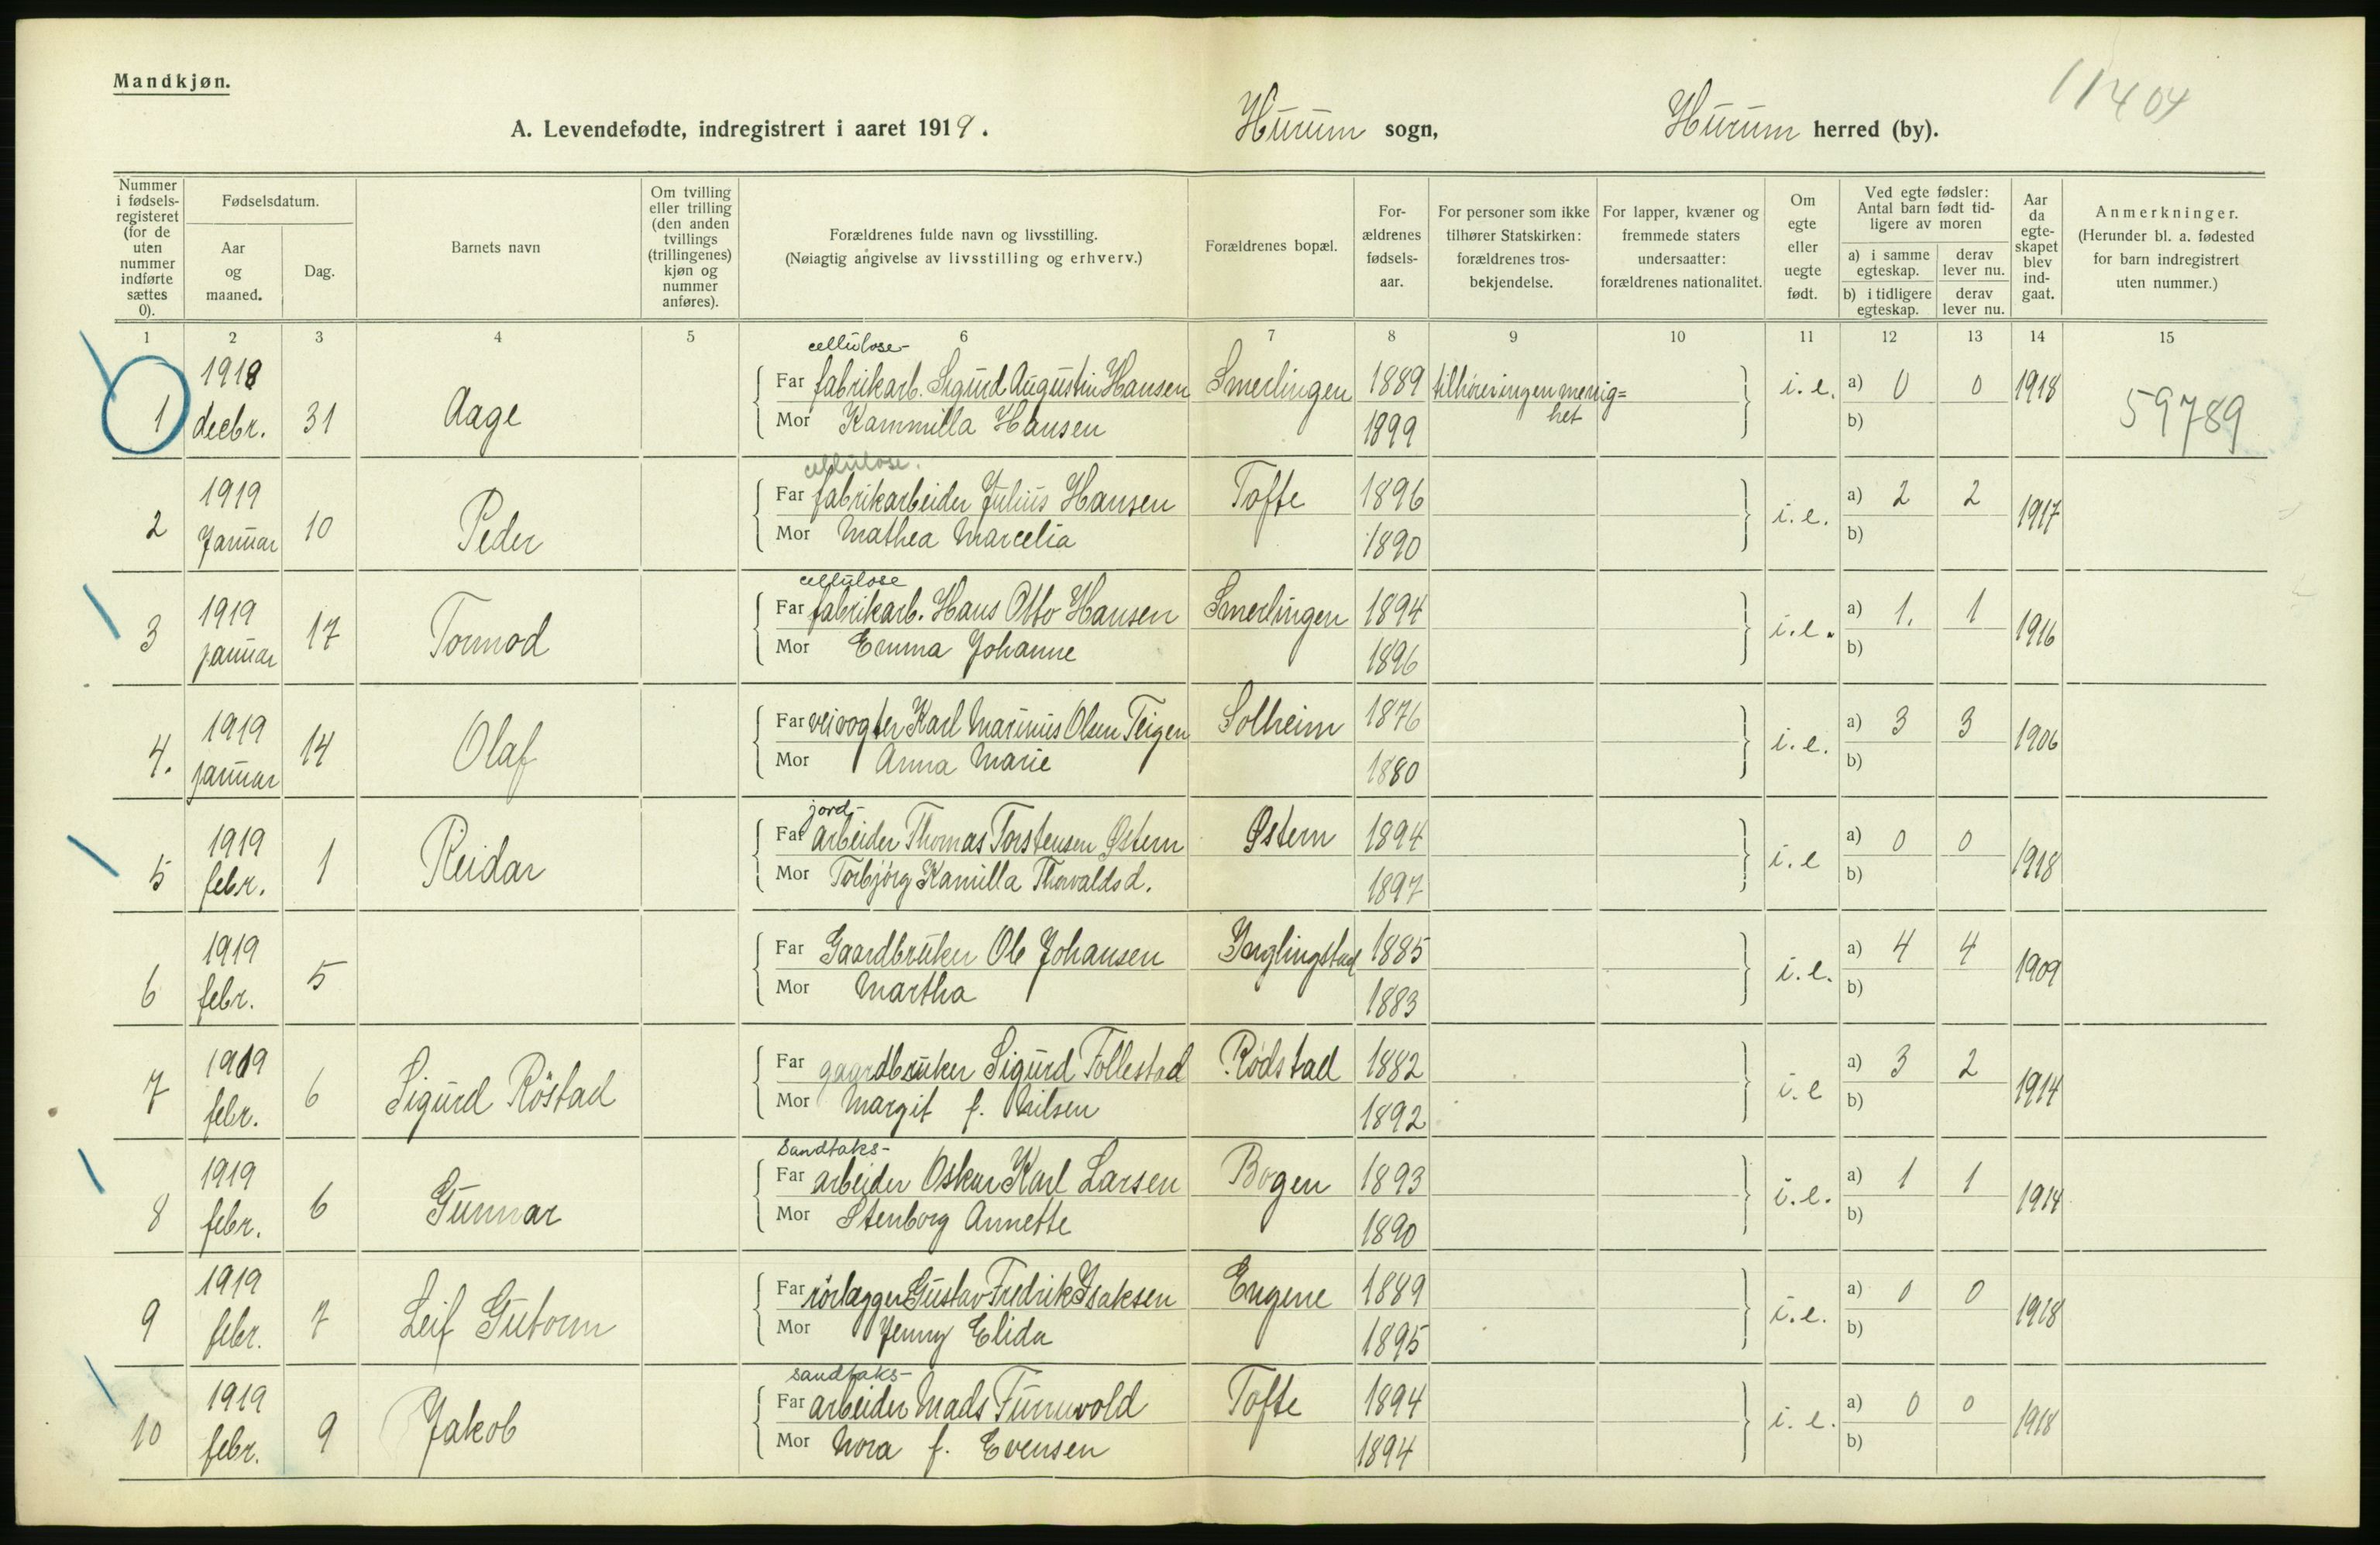 Mandkjøn.
11404
A. Levendefødte, indregistrert i aaret 1919. Hurum sogn, Hurum herred (by).
Nummer i fødsels-registeret (for de uten nummer indførte sættes 0).
Fødselsdatum.
Aar og maaned.
Dag.
Barnets navn
Om tvilling eller trilling (den anden tvillings (trillingenes) kjøn og nummer anføres).
Forældrenes fulde navn og livsstilling.
(Nøiagtig angivelse av livsstilling og erhverv.)
Forældrenes bopæl.
For-ældrenes fødsels-aar.
For personer som ikke tilhører Statskirken: forældrenes tros-bekjendelse.
For lapper, kvæner og fremmede staters undersaatter: forældrenes nationalitet.
Om egte eller uegte født.
Ved egte fødsler: Antal barn født tid-ligere av moren
a) i samme egteskap. derav lever nu.
b) i tidligere egteskap. derav lever nu.
Aar da egte-skapet blev ind-gaat.
Anmerkninger.
(Herunder bl. a. fødested for barn indregistrert uten nummer.)
1 2 3 4 5 6 7 8 9 10 11 12 13 14 15
cellulose-
1 1918 decbr. 31 Aage Far fabrikarb. Sigurd Augustin Hansen Smerlingen 1889 tilhører ingen menig=het i.e. a) 0 0 1918 59789
Mor Kammilla Hansen 1899 b)
cellulose.
2 1919 Januar 10 Peder Far fabrikarbeider Julius Hansen Tofte 1896 i.e. a) 2 2 1917
Mor Mathea Marcelia 1890 b)
cellulose
3 1919 januar 17 Tormod Far fabrikarb. Hans Otto Hansen Smerlingen 1894 i.e. a) 1. 1 1916
Mor Emma Johanne 1896 b)
4. 1919 januar 14 Olaf Far veivogter Karl Marinius Olsen Teigen Solheim 1876 i.e. a) 3 3 1906
Mor Anna Marie 1880 b)
jord-
5 1919 febr. 1 Reidar Far arbeider Thomas Torstensen Østern Østern 1894 i.e a) 0 0 1918
Mor Torbjørg Kamilla Thorvaldsd. 1897 b)
6 1919 febr. 5 Far Gaardbruker Ole Johansen 1885 i.e. a) 4 4 1909
Mor Martha 1883 b)
7 1919 febr. 6 Sigurd Röstad Far gaardbruker Sigurd Follestad Rødstad 1882 i.e a) 3 2 1914
Mor Margit f. Nilsen 1892 b)
Sandtaks-
8 1919 febr. 6 Gunnar Far arbeider Oskar Karl Larsen Bogen 1893 i.e. a) 1 1 1914
Mor Stenborg Annette 1890 b)
9 1919 febr. 7 Leif Gutorm Far rörlægger Gustav Fredrik Isaksen Engene 1889 i.e. a) 0 0 1918
Mor Jenny Elida 1895 b)
sandtaks-
10 1919 febr. 9 Jakob Far arbeider Mads Tofte 1894 i.e. a) 0 0 1918
Mor Nora f. Evensen 1894 b)